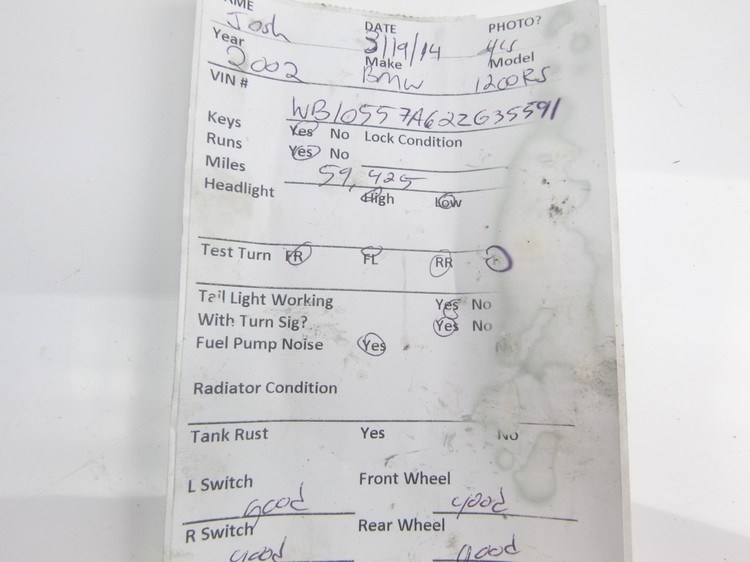 NAME DATE PHOTO?
Josh 3/19/14 yes
Year Make Model
2002 BMW 1200RS
VIN # WB10557A622G35591
Keys Yes No Lock Condition
Runs Yes No
Miles 59,425
Headlight High Low
Test Turn FR FL RR
Tail Light Working Yes No
With Turn Sig? Yes No
Fuel Pump Noise Yes
Radiator Condition
Tank Rust Yes No
L Switch Good Front Wheel good
R Switch good Rear Wheel good